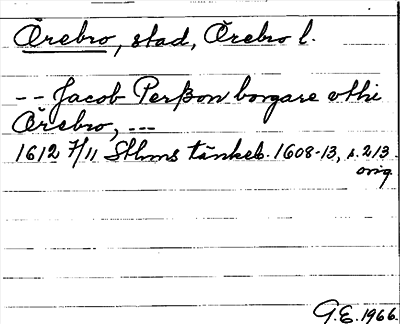 Örebro, stad, Örebro l.
-- Jacob Perßon borgare vthi
Örebro, ---
1612 7/11 Sthms tänkeb. 1608-13, s. 213
orig
G.E. 1966.